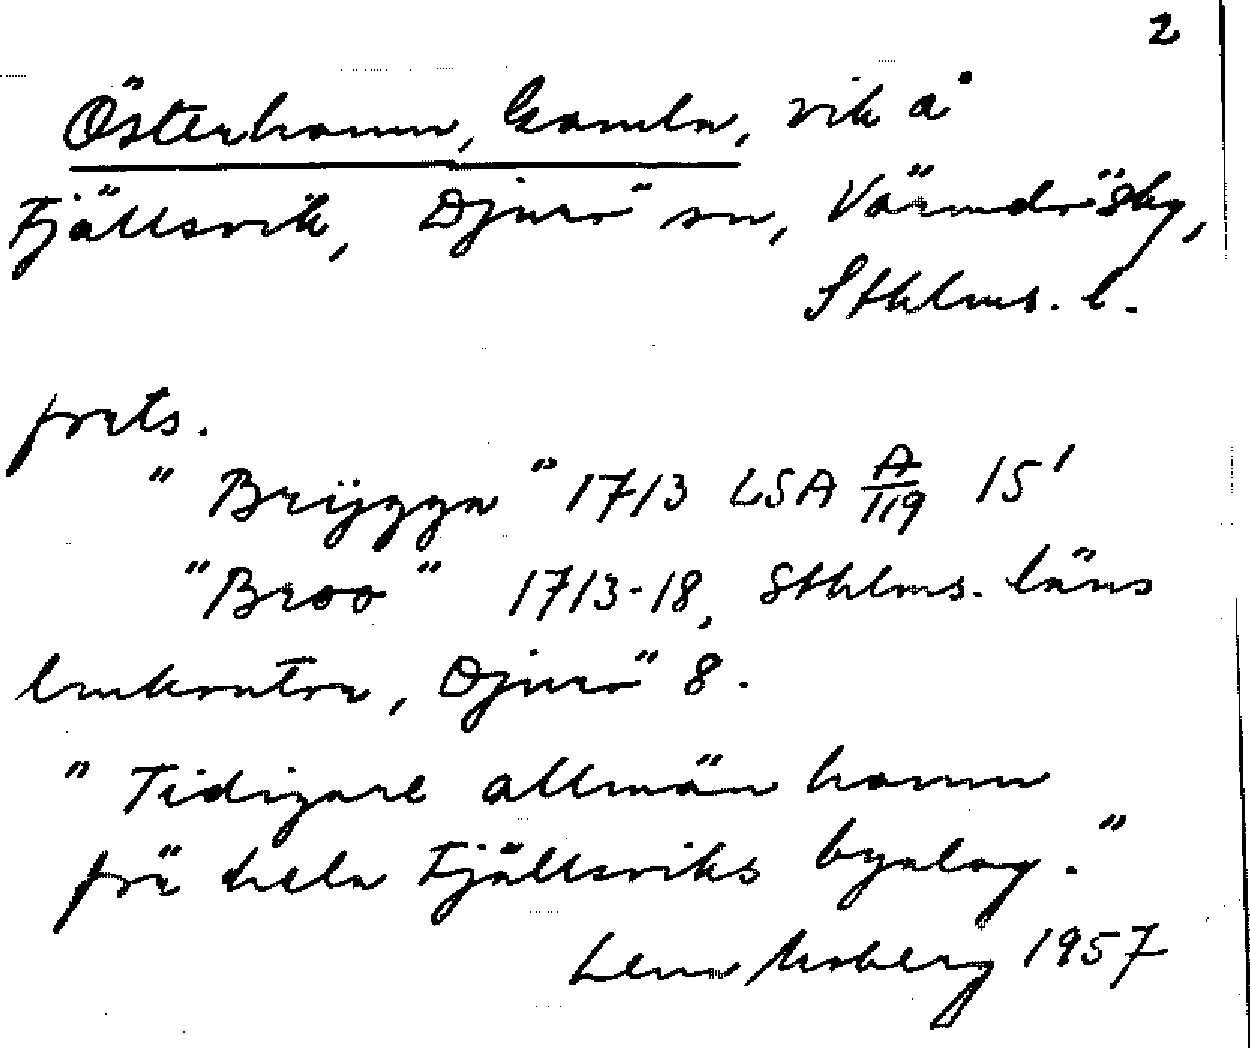 2
Österhamn, Gamla, vik å
Fjällsvik, Djurö sn, Värmdö skg,
Sthlms. l.
forts.
" Brÿgga " 1713 LSA A/119 15'
"Broo" 1713-18, Sthlms. läns
lmkontor, Djurö 8.
" Tidigare allmän hamn
för hela Fjällsviks byalag."
Lena Moberg 1957